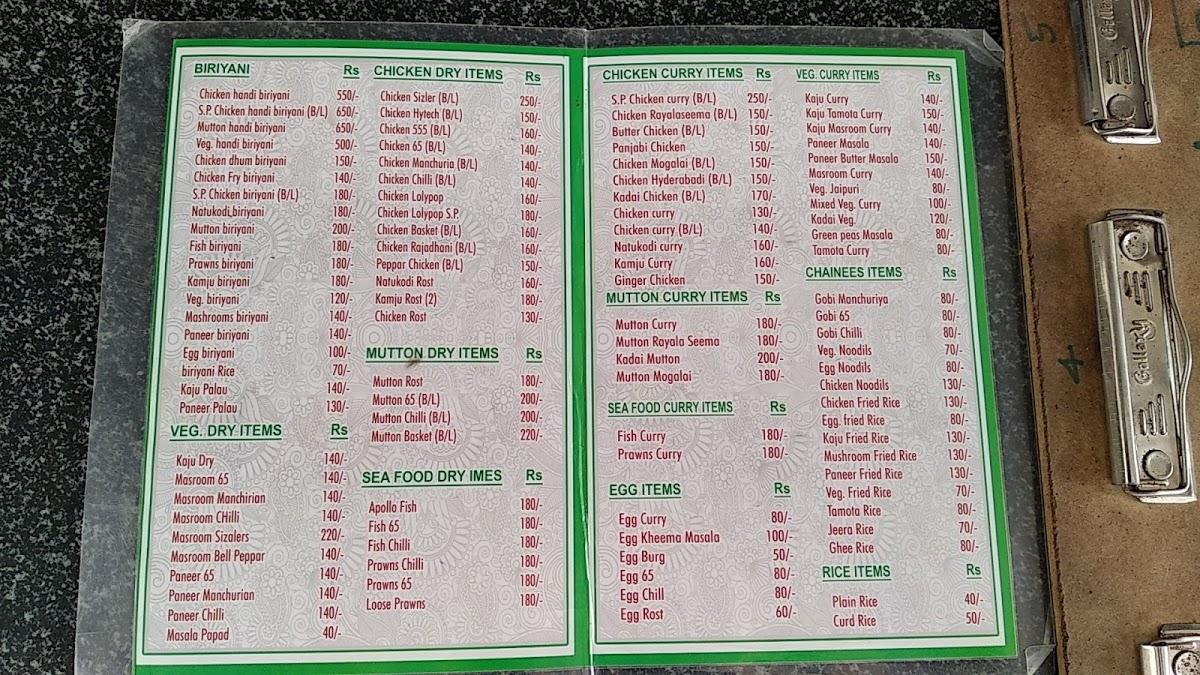 BIRIYANI Rs
Chicken handi biriyani 550/-
S.P. Chicken handi biriyani (B/L) 650/-
Mutton handi biriyani 650/-
Veg. handi biriyani 500/-
Chicken dhum biriyani 150/-
Chicken Fry biriyani 140/-
S.P. Chicken biriyani (B/L) 180/-
Natukodi,biriyani 180/-
Mutton biriyani 200/-
Fish biriyani 180/-
Prawns biriyani 180/-
Kamju biriyani 180/-
Veg. biriyani 120/-
Mashrooms biriyani 140/-
Paneer biriyani 140/-
Egg biriyani 100/-
biriyani Rice 70/-
Kaju Palau 140/-
Paneer Palau 130/-
VEG. DRY ITEMS Rs
Kaju Dry 140/-
Masroom 65 140/-
Masroom Manchirian 140/-
Masroom CHilli 140/-
Masroom Sizalers 220/-
Masroom Bell Peppar 140/-
Paneer 65 140/-
Paneer Manchurian 140/-
Paneer Chilli 140/-
Masala Papad 40/-
CHICKEN DRY ITEMS Rs
Chicken Sizler (B/L) 250/-
Chicken Hytech (B/L) 150/-
Chicken 555 (B/L) 160/-
Chicken 65 (B/L) 140/-
Chicken Manchuria (B/L) 140/-
Chicken Chilli (B/L) 140/-
Chicken Lolypop 160/-
Chicken Lolypop S.P. 180/-
Chicken Basket (B/L) 160/-
Chicken Rajadhani (B/L) 160/-
Peppar Chicken (B/L) 150/-
Natukodi Rost 160/-
Kamju Rost (2) 180/-
Chicken Rost 130/-
MUTTON DRY ITEMS Rs
Mutton Rost 180/-
Mutton 65 (B/L) 200/-
Mutton Chilli (B/L) 200/-
Mutton Basket (B/L) 220/-
SEA FOOD DRY IMES Rs
Apollo Fish 180/-
Fish 65 180/-
Fish Chilli 180/-
Prawns Chilli 180/-
Prawns 65 180/-
Loose Prawns 180/-
CHICKEN CURRY ITEMS Rs
S.P. Chicken curry (B/L) 250/-
Chicken Rayalaseema (B/L) 150/-
Butter Chicken (B/L) 150/-
Panjabi Chicken 150/-
Chicken Mogalai (B/L) 150/-
Chicken Hyderabadi (B/L) 150/-
Kadai Chicken (B/L) 170/-
Chicken curry 130/-
Chicken curry (B/L) 140/-
Natukodi curry 160/-
Kamju Curry 160/-
Ginger Chicken 150/-
MUTTON CURRY ITEMS Rs
Mutton Curry 180/-
Mutton Rayala Seema 180/-
Kadai Mutton 200/-
Mutton Mogalai 180/-
SEA FOOD CURRY ITEMS Rs
Fish Curry 180/-
Prawns Curry 180/-
EGG ITEMS Rs
Egg Curry 80/-
Egg Kheema Masala 100/-
Egg Burg 50/-
Egg 65 80/-
Egg Chill 80/-
Egg Rost 60/-
VEG. CURRY ITEMS Rs
Kaju Curry 140/-
Kaju Tamota Curry 150/-
Kaju Masroom Curry 140/-
Paneer Masala 140/-
Paneer Butter Masala 150/-
Masroom Curry 140/-
Veg. Jaipuri 80/-
Mixed Veg. Curry 100/-
Kadai Veg. 120/-
Green peas Masala 80/-
Tamota Curry 80/-
CHAINEES ITEMS Rs
Gobi Manchuriya 80/-
Gobi 65 80/-
Gobi Chilli 80/-
Veg. Noodils 70/-
Egg Noodils 80/-
Chicken Noodils 130/-
Chicken Fried Rice 130/-
Egg. fried Rice 80/-
Kaju Fried Rice 130/-
Mushroom Fried Rice 130/-
Paneer Fried Rice 130/-
Veg. Fried Rice 70/-
Tamota Rice 80/-
Jeera Rice 70/-
Ghee Rice 80/-
RICE ITEMS Rs
Plain Rice 40/-
Curd Rice 50/-
5
4
Gallery